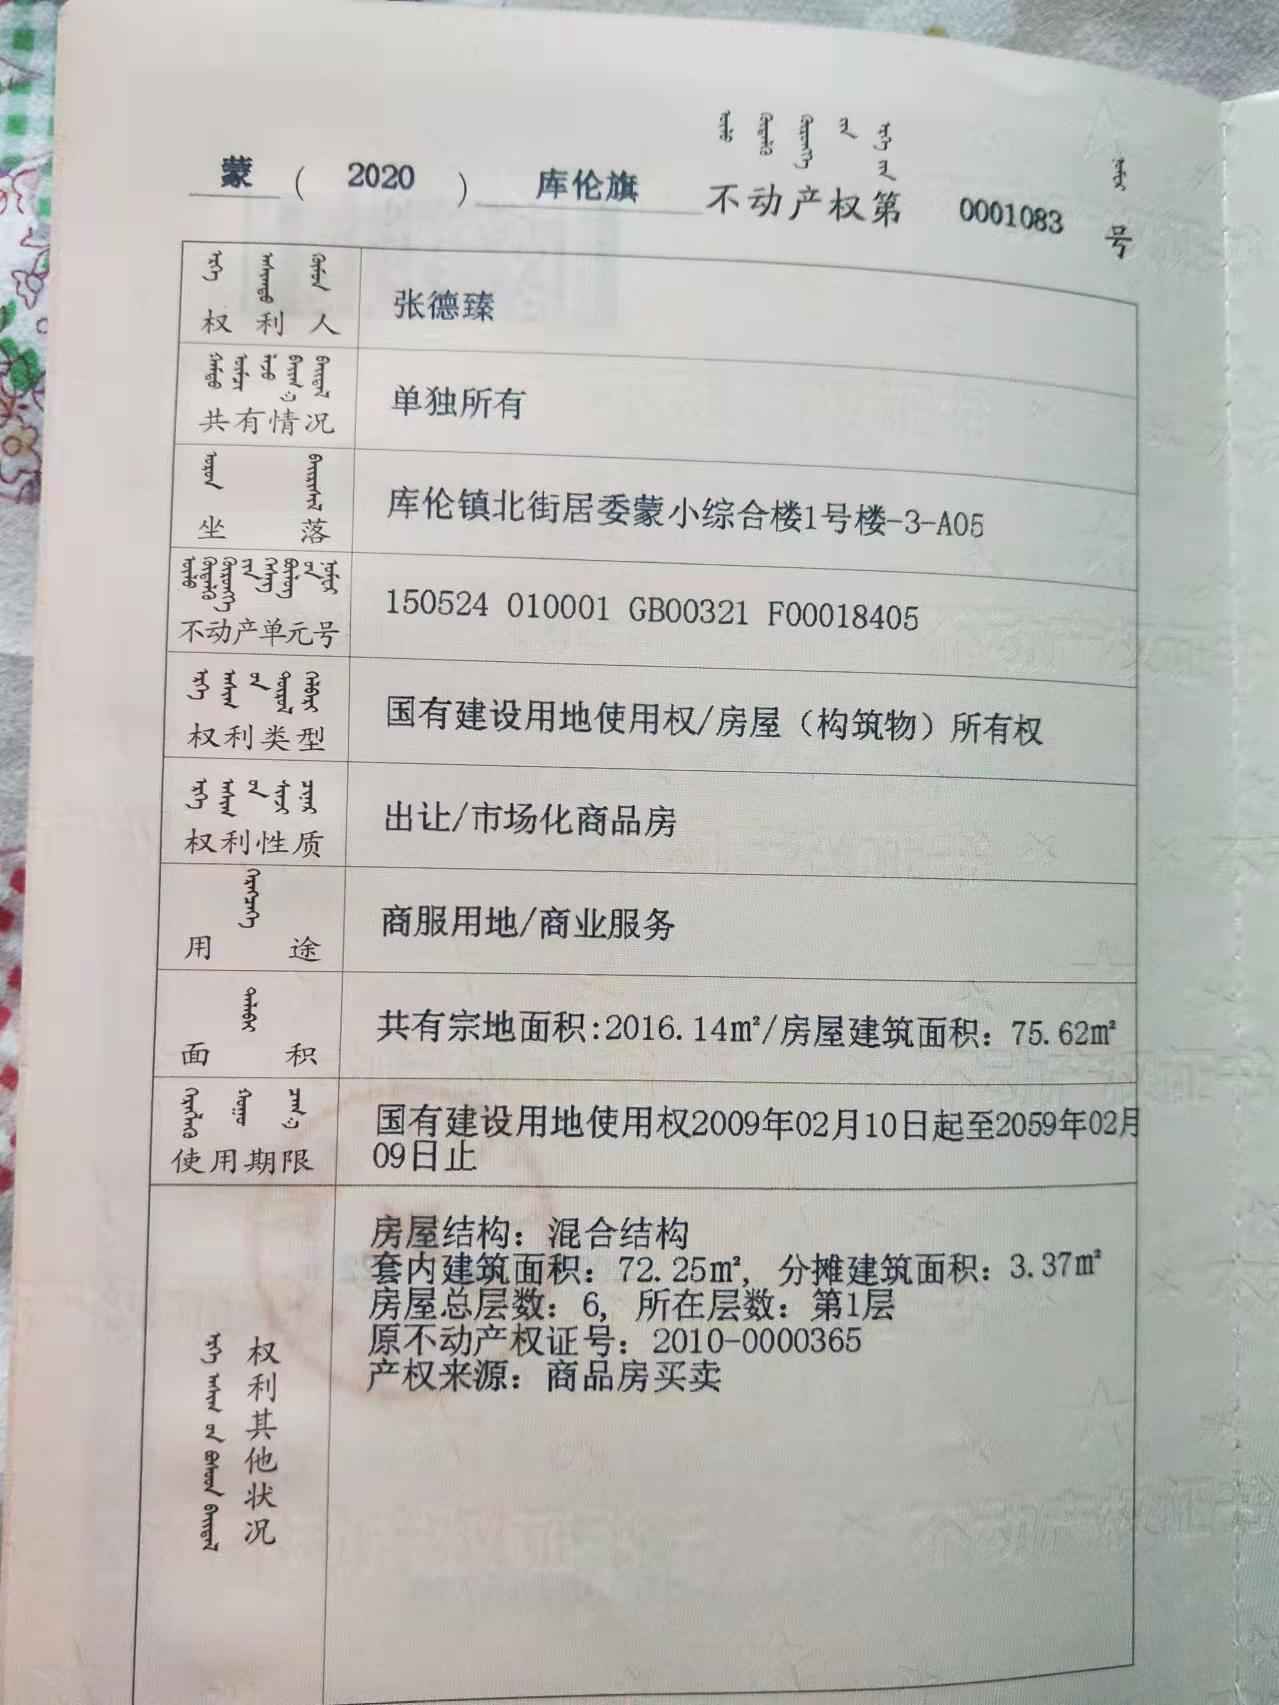 蒙 ( 2020 ) 库伦旗 不动产权第 0001083 号
权利人 张德臻
共有情况 单独所有
坐落 库伦镇北街居委蒙小综合楼1号楼-3-A05
不动产单元号 150524 010001 GB00321 F00018405
权利类型 国有建设用地使用权/房屋（构筑物）所有权
权利性质 出让/市场化商品房
用途 商服用地/商业服务
面积 共有宗地面积:2016.14㎡/房屋建筑面积：75.62㎡
使用期限 国有建设用地使用权2009年02月10日起至2059年02月
09日止
权利其他状况
房屋结构：混合结构
套内建筑面积：72.25㎡，分摊建筑面积：3.37㎡
房屋总层数：6，所在层数：第1层
原不动产权证号：2010-0000365
产权来源：商品房买卖